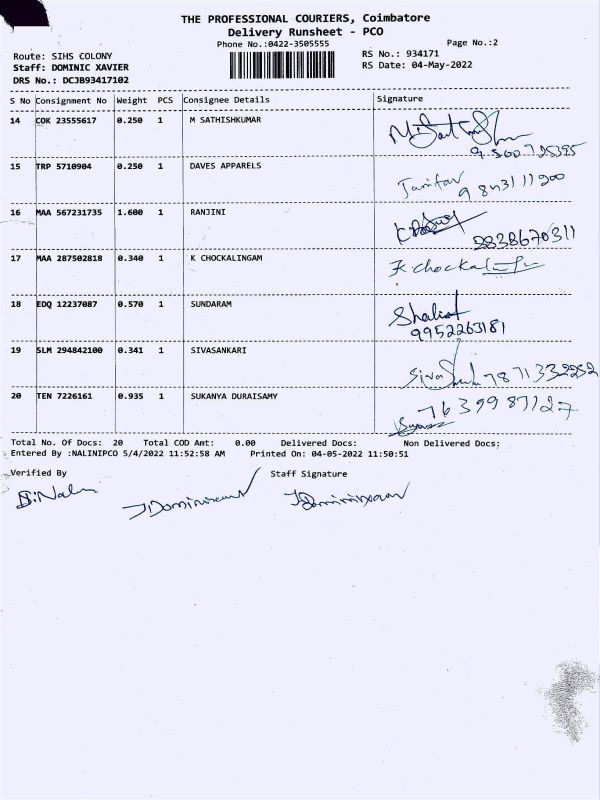 THE PROFESSIONAL COURIERS, Coimbatore
Delivery Runsheet - PCO
Phone No.:0422-3505555
Page No.:2
Route: SIHS COLONY
RS No.: 934171
Staff: DOMINIC XAVIER
RS Date: 04-May-2022
DRS No.: DCJB93417102
S No Consignment No Weight PCS Consignee Details Signature
14 COK 23555617 0.250 1 M SATHISHKUMAR
15 TRP 5710904 0.250 1 DAVES APPARELS
9843111200
16 MAA 567231735 1.600 1 RANJINI
2838670311
17 MAA 287502818 0.340 1 K CHOCKALINGAM
K chockalingam
18 EDQ 12237087 0.570 1 SUNDARAM
9952263181
19 SLM 294842100 0.341 1 SIVASANKARI
Siva 7871332252
20 TEN 7226161 0.935 1 SUKANYA DURAISAMY
7639987127
Total No. Of Docs: 20 Total COD Amt: 0.00 Delivered Docs: Non Delivered Docs:
Entered By :NALINIPCO 5/4/2022 11:52:58 AM Printed On: 04-05-2022 11:50:51
Verified By Staff Signature